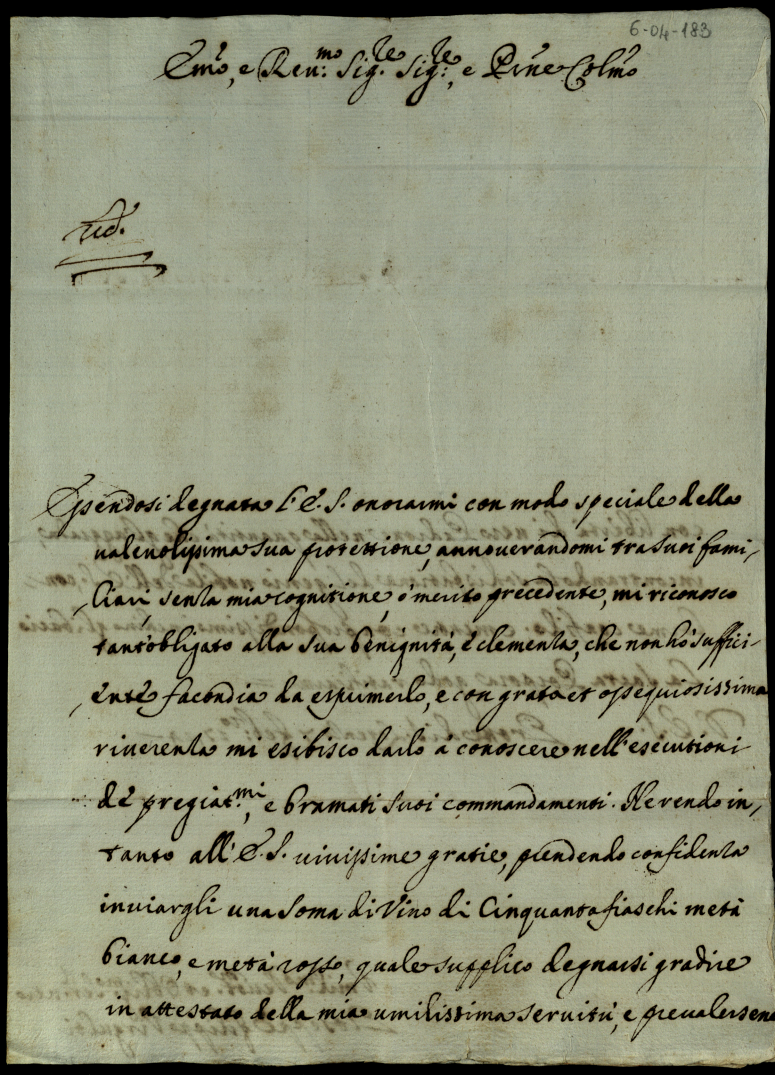 6-04-183
Emo, e Reu:mo Sig.re Sig:re, e Prne Colmo
Essendosi degnata l'E. S. onorarmi con modo speciale della
valeuolissima sua protettione, annouerandomi tra suoi fami-
liari, senza mia cognitione, ò merito precedente, mi riconosco
tant'obligato alla sua benignità, è clemenza, che non hò suffici-
ente facondia da esprimerlo, e con grata et ossequiosissima
riuerenza mi esibisco darlo à conoscere nell'esecutioni
dè pregiat.mi, e bramati suoi commandamenti. Ne rendo in-
tanto all'E. S. uiuissime gratie, prendendo confidenza
inuiargli una soma di Vino di Cinquanta fiaschi metà
bianco, e metà rosso, quale supplico degnarsi gradire
in attestato della mia umilissima seruitù, e preualersene